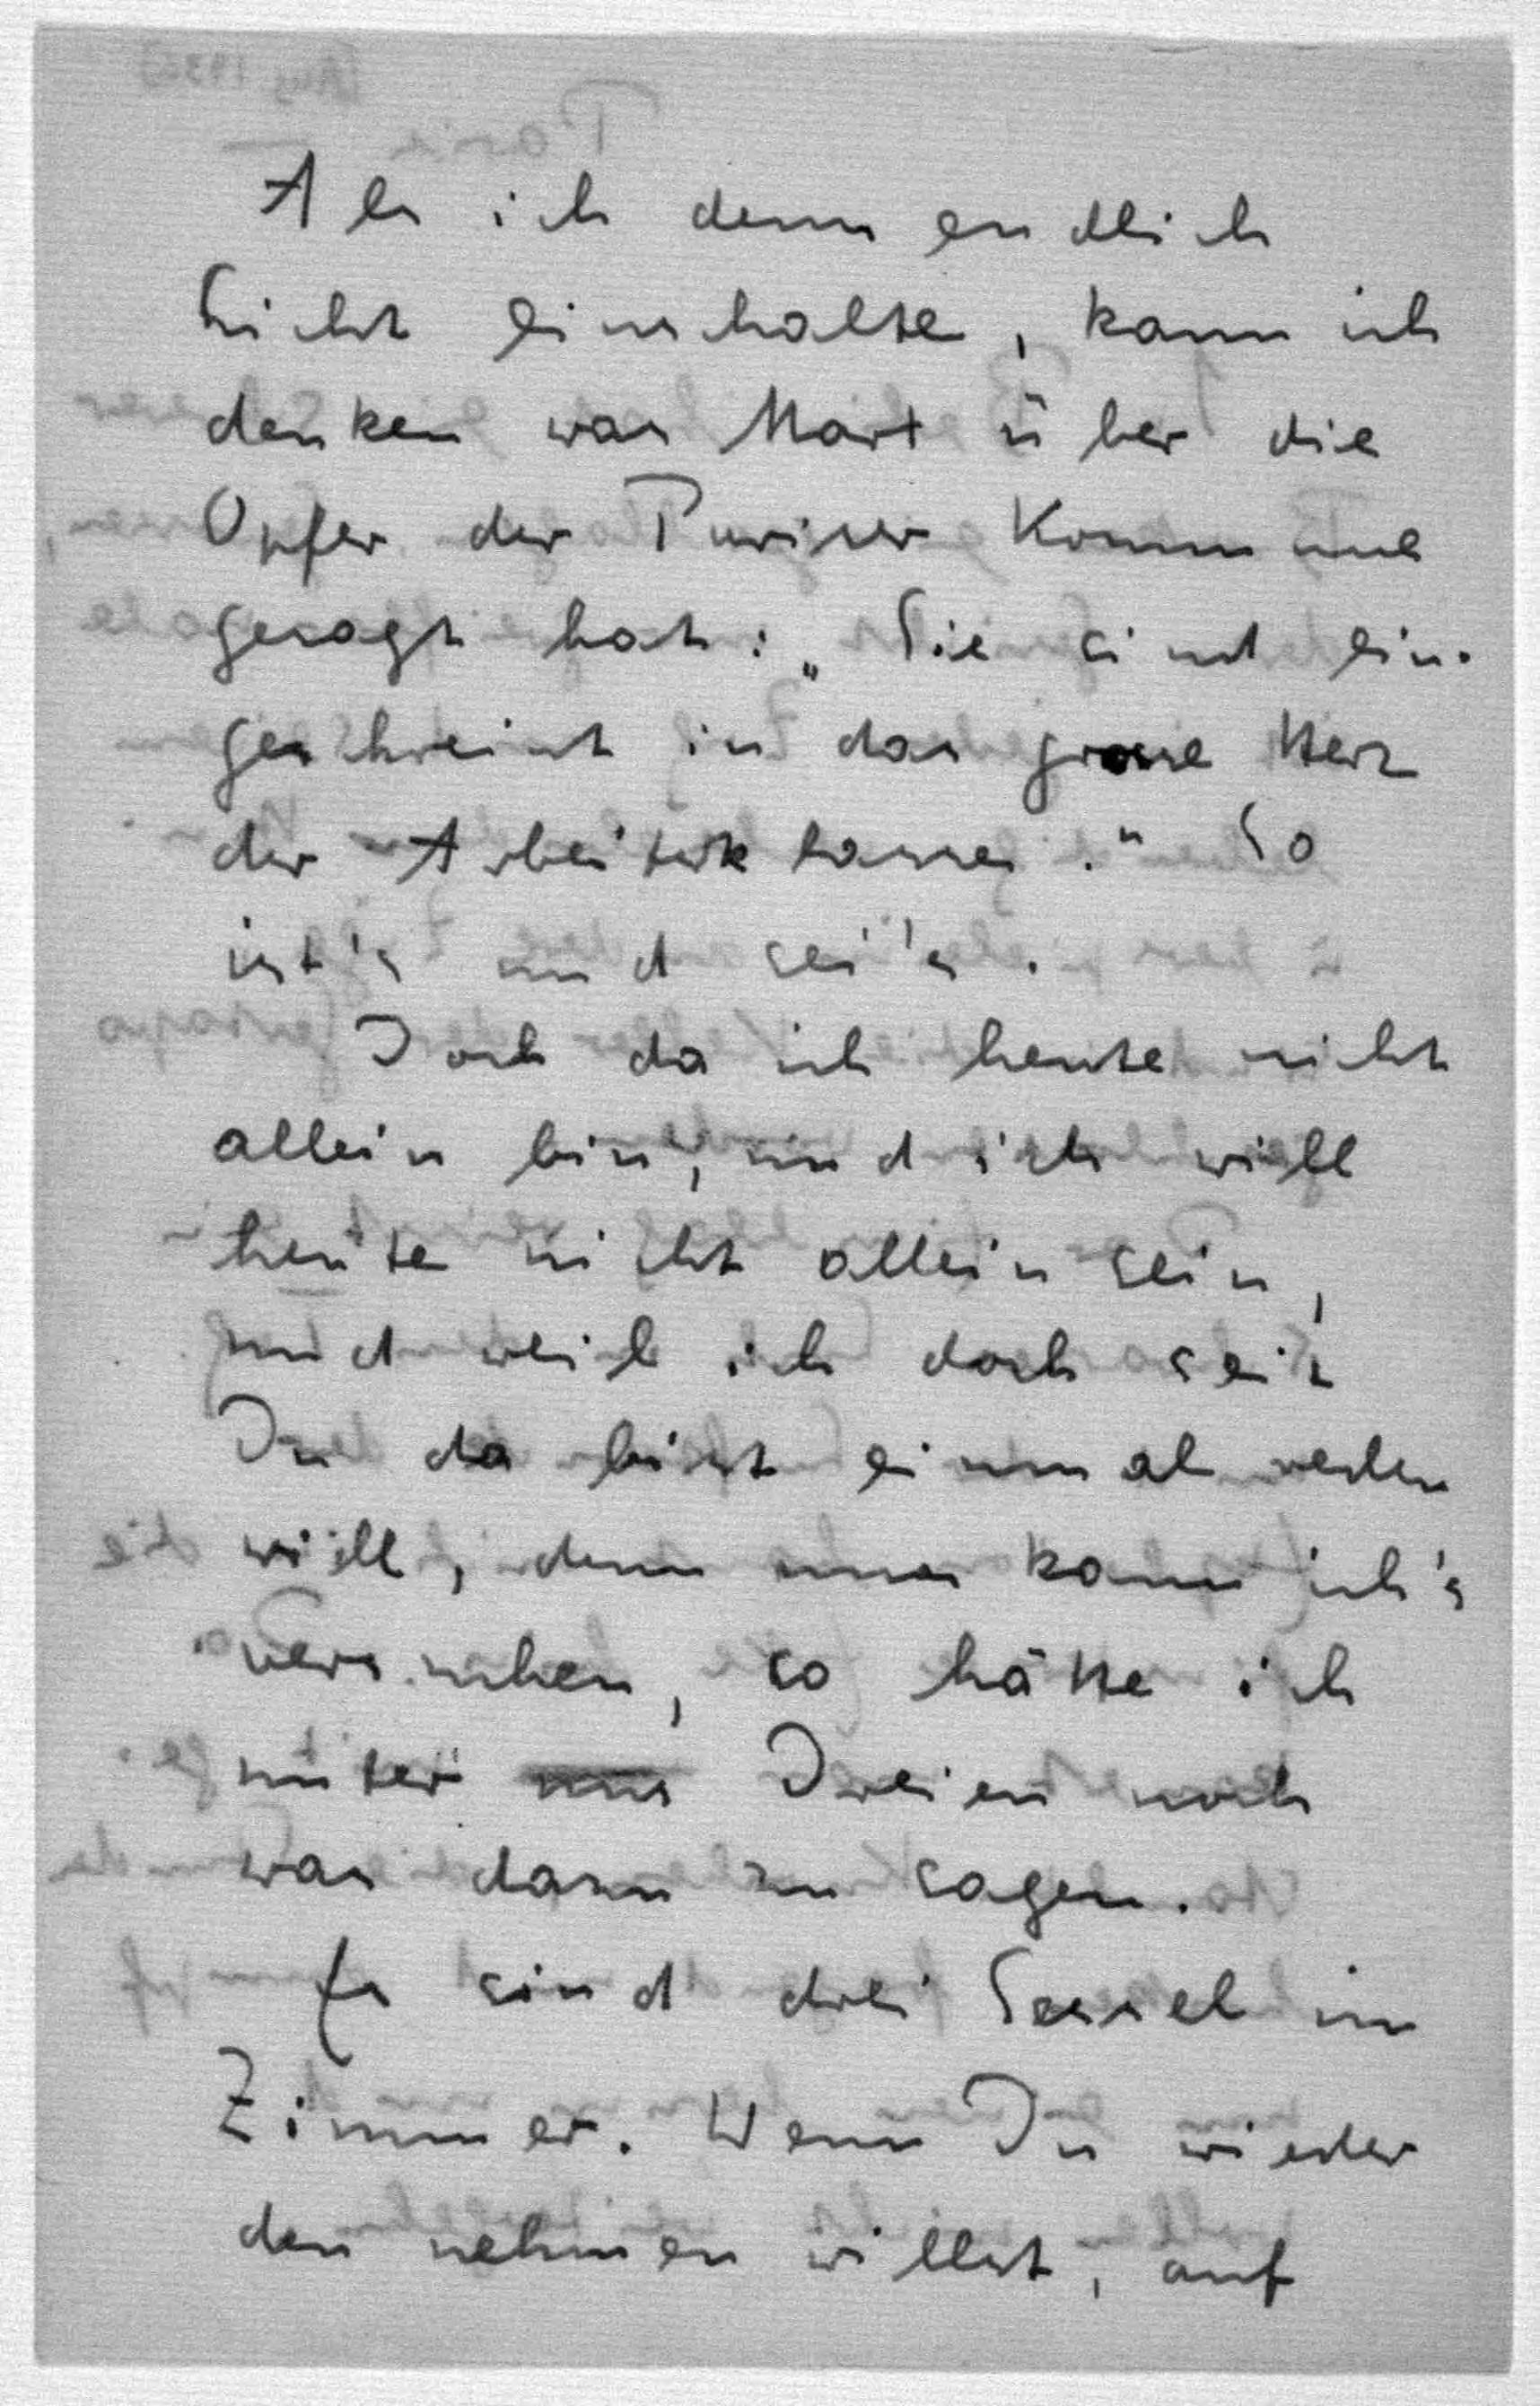 Als ich denn endlich
Licht einschalte, kann ich
denken was Marx über die
Opfer der Pariser Kommune
gesagt hat: „Sie sind ein-
geschreint in das grosse Herz
der Arbeiterklasse." So
ist's und sei's.
Doch da ich heute nicht
allein bin, und ich will
heute nicht allein sein,
und weil ich doch seit
Du da bist einmal reden
will, denn nun kann ich's
versuchen, so hätte ich
unter uns Dreien noch
was dazu zu sagen.
Es sind drei Sessel im
Zimmer. Wenn Du wieder
den nehmen willst, auf